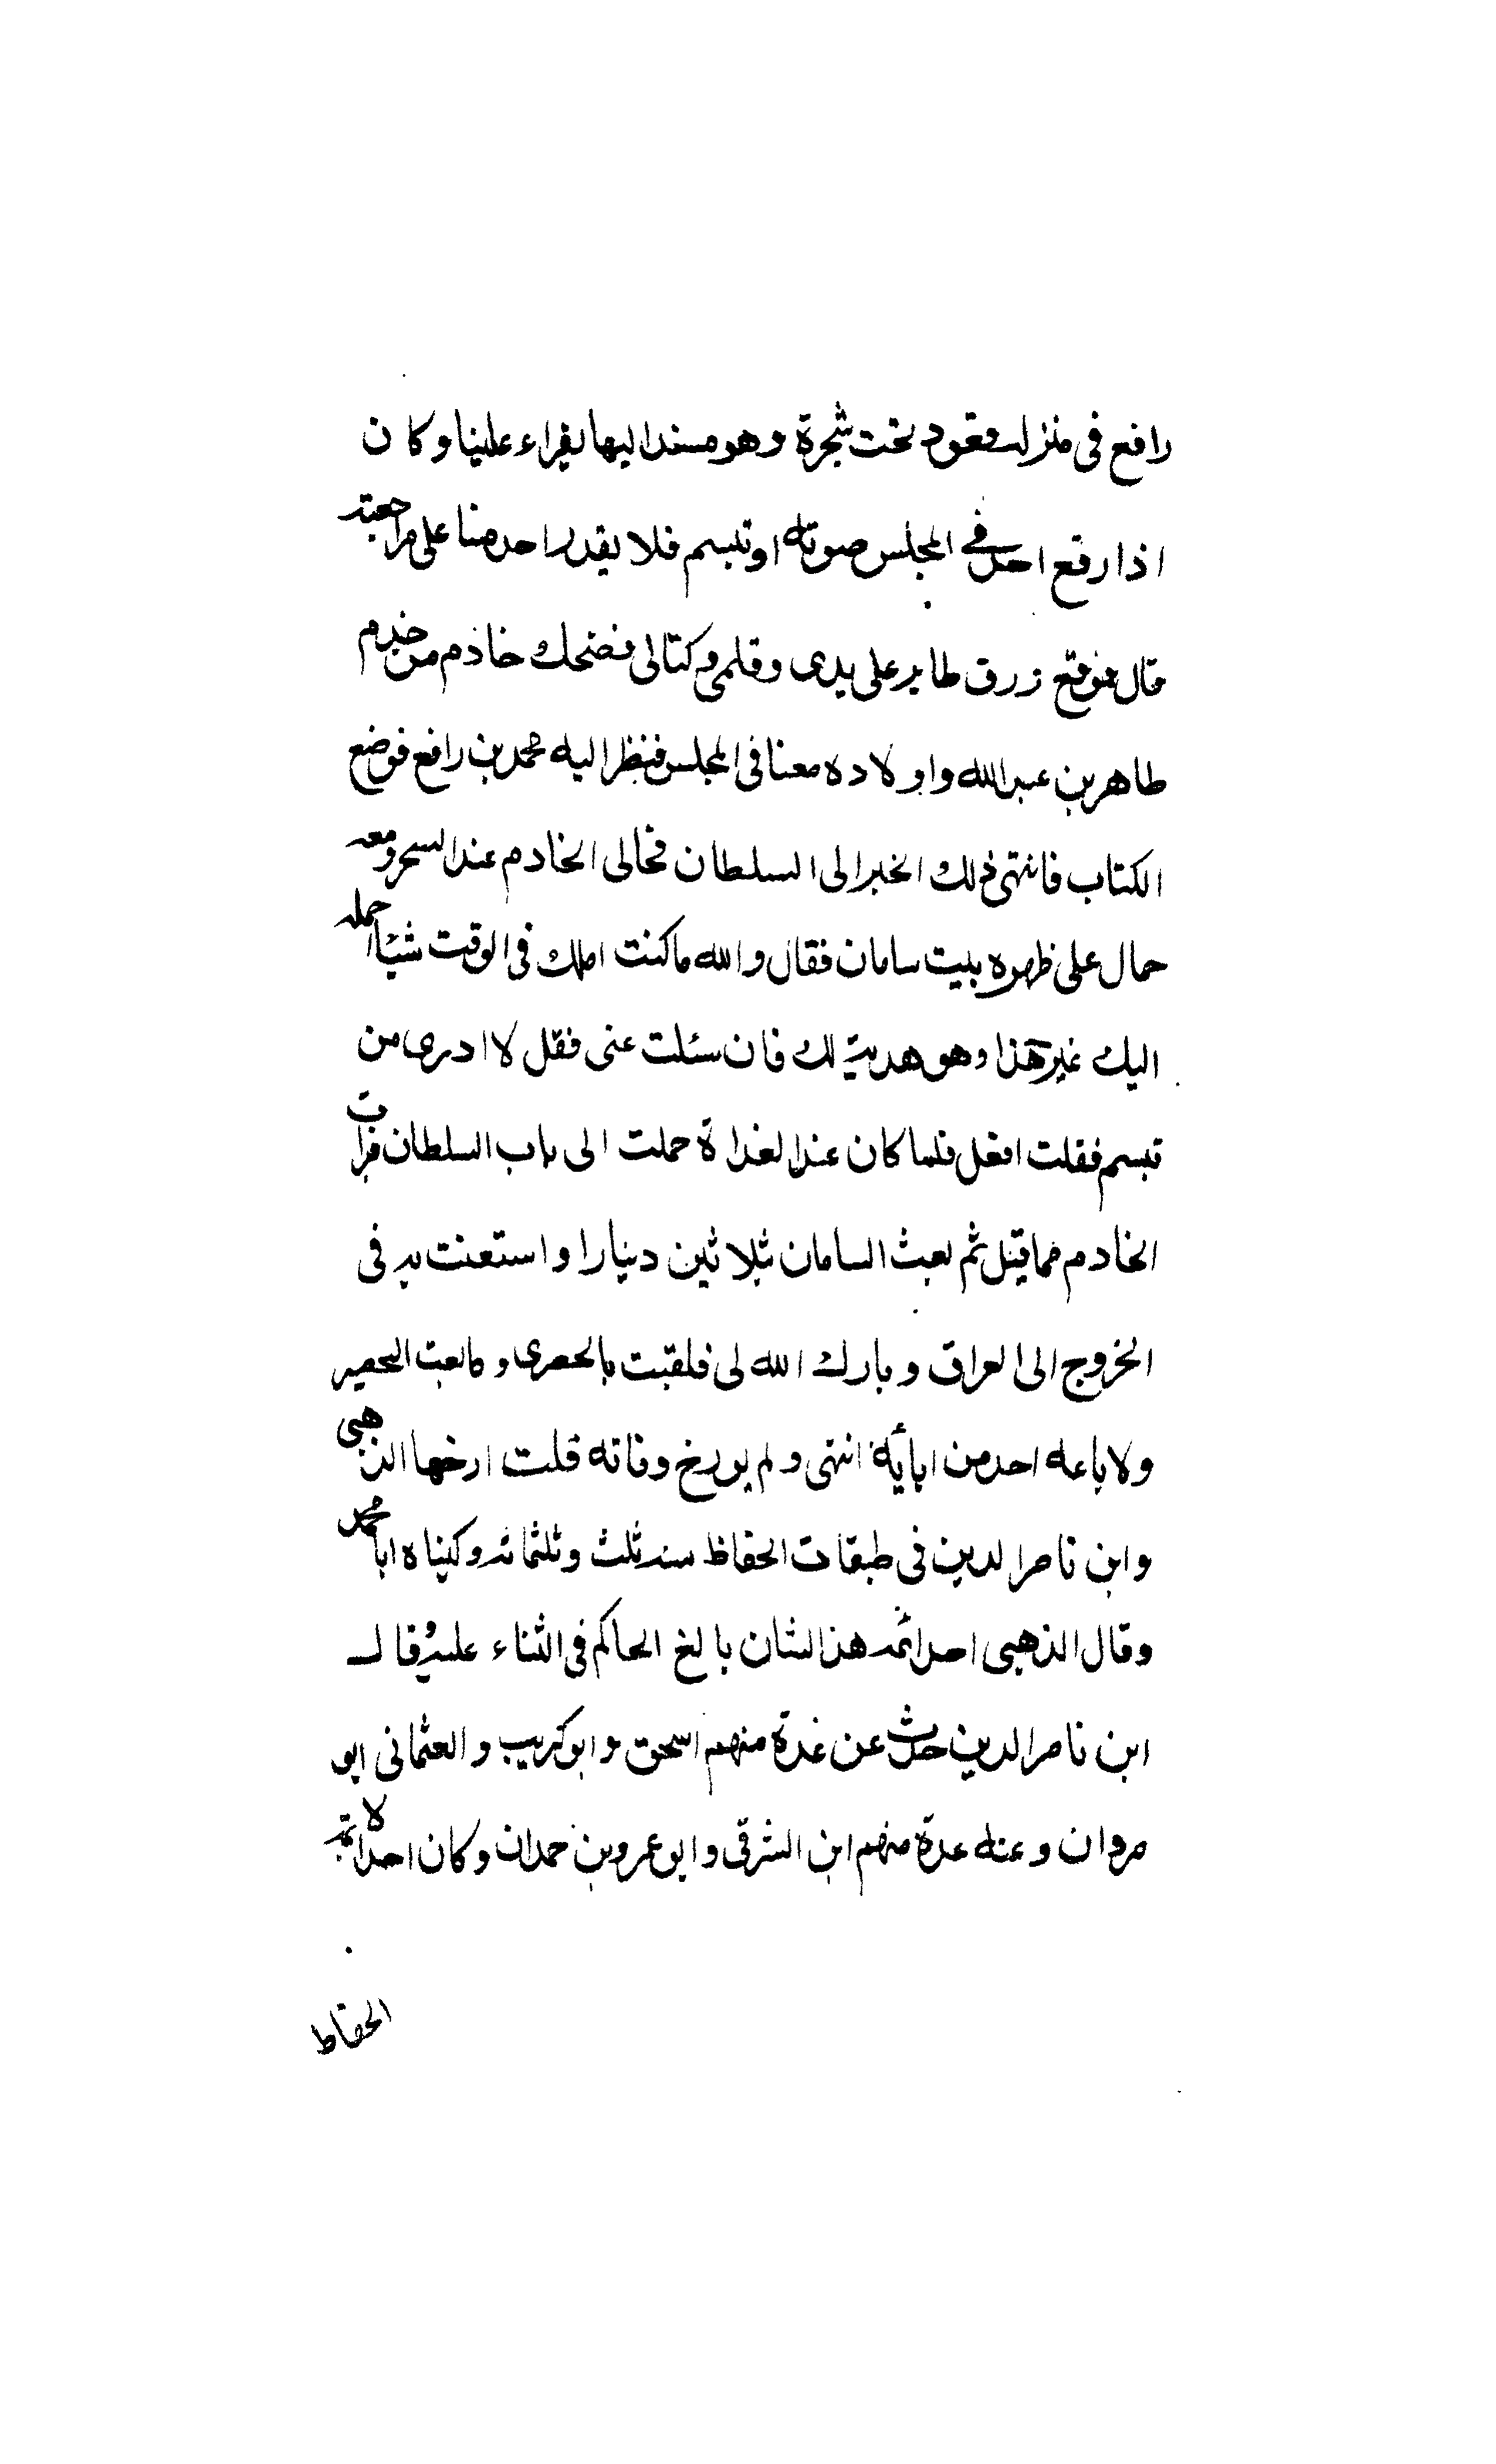 رافع فى منزله وقعود تحت شجرة وهو مسند اليها يقراء علينا وكان
اذا رفع احد فى المجلس صوته او تبسم فلا يقدر احد منا على مراجعته
قال فوقع زرق طاير على يدى وقلمى وكتابى فضحك خادم من خدم
طاهر بن عبد الله واولاده معنا فى المجلس فنظر اليه محمد بن رافع فوضع
الكتاب فانتهى ذلك الخبر الى السلطان فجالى الخادم عند السحر ومعه
حمال على ظهره بيت سامان فقال والله ما كنت املك فى الوقت شيئا احمله
اليك غير هذا وهو هدية لك فان سئلت عنى فقل لا ادرى من
تبسم فقلت افعل فلما كان عند الغداة حملت الى باب السلطان فبرات
الخادم مما قيل ثم بعث السامان بثلاثين دينارا واستعنت به فى
الخروج الى العراق وبارك الله لى فلقبت بالحصرى وما بعت الحصير
ولا باعه احد من ابائه انتهى ولم يورخ وفاته قلت ارخها الذهبى
وابن ناصر الدين فى طبقات الحفاظ سنه ثلث وثلثمائه وكيناه ابا محمد
وقال الذهبى احد ائمه هذا الشان بالغ الحاكم فى الثناء عليه وقال
ابن ناصر الدين حدث عن عدة منهم اسحق وابو كريب والعثمانى ابو
مروان وعنه عدة منهم ابن الشرقى وابو عمرو بن حمدان وكان احد الائمة
الحفاظ